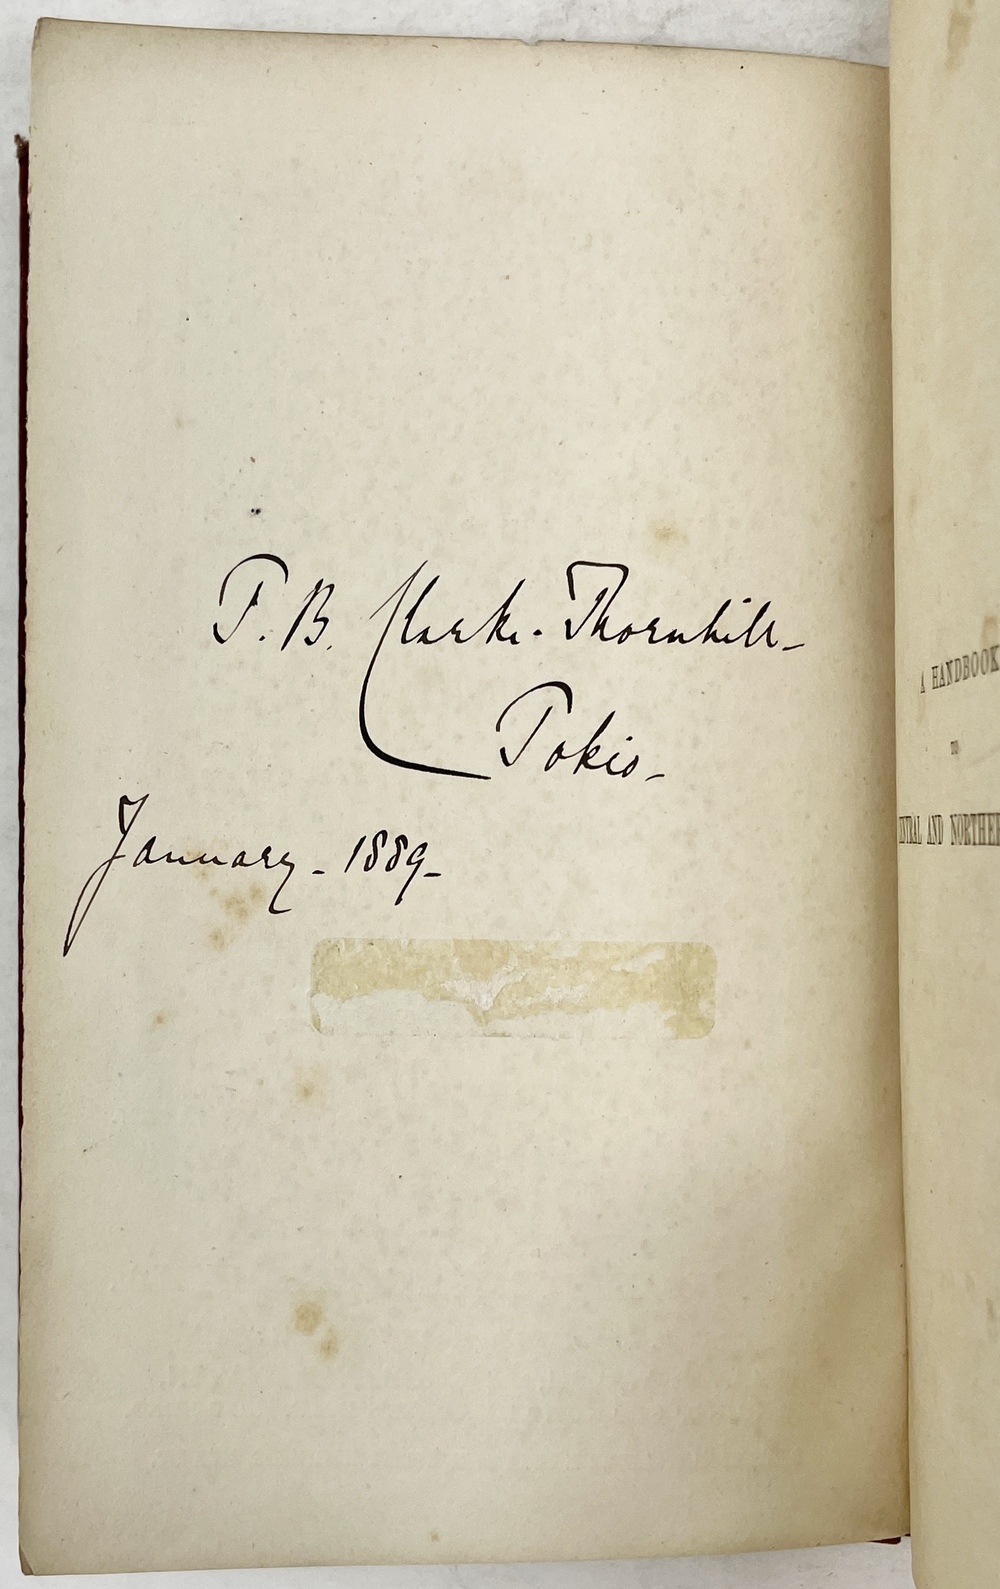 T. B. Clarke-Thornhill-
Tokio-
January - 1889-
A HANDBOOK
TO
ENTRAL AND NORTHER